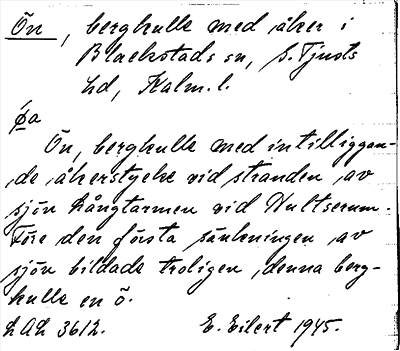 Ön, bergkulle med åker i
Blackstads sn, S. Tjusts
hd, Kalm. l.
Øa
Ön, bergkulle med intilliggan-
de åkerstycke vid stranden av
sjön Långtarmen vid Hultserum.
Före den första sänkningen av
sjön bildade troligen denna berg-
kulle en ö.
LAL 3612. E. Eilert 1945.